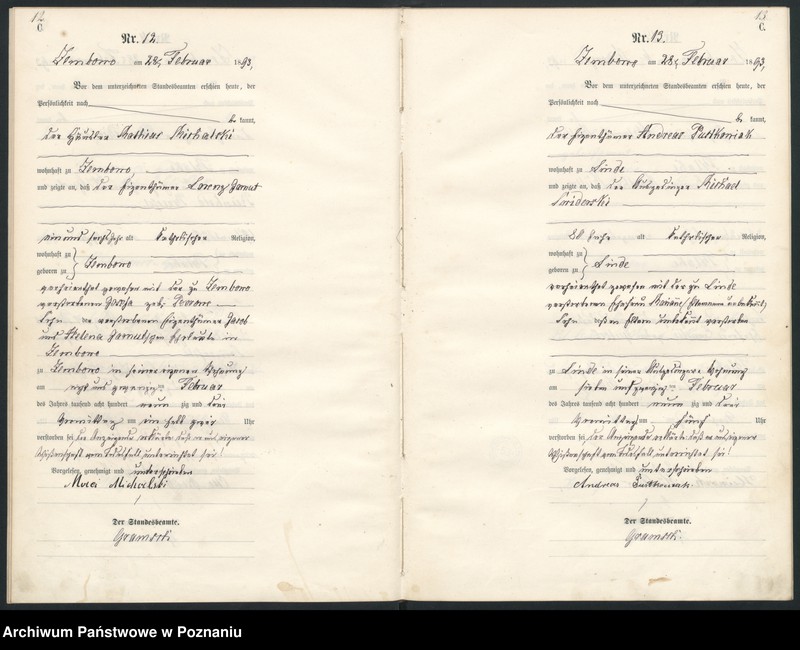 12.
C.
Nr. 12.
Zembowo am 28. Februar 1893,
Vor dem unterzeichneten Standesbeamten erschien heute, der
Persönlichkeit nach
be kannt,
der Häusler Mathias Michalski
wohnhaft zu Zembowo
und zeigte an, daß der Eigenthümer Lorenz Jarnut
ein und sechszig Jahr alt katholischer Religion,
wohnhaft zu
geboren zu Zembowo
verheirathet gewesen mit der zu Zembowo
verstorbenen Josefa geb.
Sohn der verstorbenen Eigenthümer Jacob
und Helena Jarnut'schen Eheleute in
Zembowo
zu Zembowo in seiner eigenen Wohnung
am acht und zwanzigsten Februar
des Jahres tausend acht hundert neun zig und drei
Vormittag um ein halb zwei Uhr
verstorben sei, der Anzeigende erklärte daß er aus eigener
Wissenschaft vom Todesfall unterrichtet sei!
Vorgelesen, genehmigt und unterschrieben
Maci Michalski
Der Standesbeamte.
Gramski
13.
C.
Nr. 13.
Zembowo am 28. Februar 1893,
Vor dem unterzeichneten Standesbeamten erschien heute, der
Persönlichkeit nach
be kannt,
der Eigenthümer Andreas Putkoniak
wohnhaft zu Linde
und zeigte an, daß der Ausgedinger Michael
Swiderski
80 Jahr alt katholischer Religion,
wohnhaft zu
geboren zu Linde
verheirathet gewesen mit der zu Linde
verstorbenen Ehefrau Mariane (Namen unbekannt)
Sohn dessen Eltern unbekannt verstorben
zu Linde in seiner Ausgedinger Wohnung
am sieben und zwanzigsten Februar
des Jahres tausend acht hundert neun zig und drei
Vormittag um fünf Uhr
verstorben sei, der Anzeigende erklärte daß er aus eigener
Wissenschaft vom Todesfall unterrichtet sei!
Vorgelesen, genehmigt und unterschrieben
Andreas Putkoniak
Der Standesbeamte.
Gramski.
Archiwum Państwowe w Poznaniu